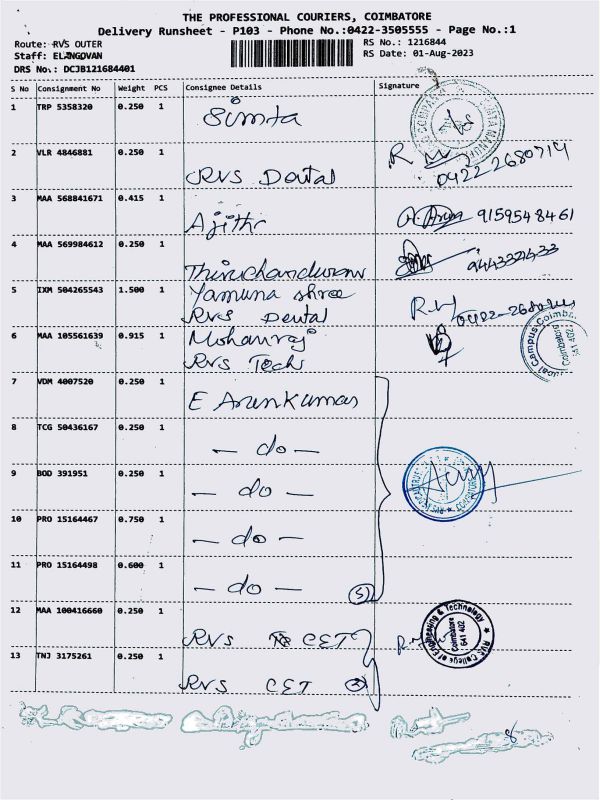 THE PROFESSIONAL COURIERS, COIMBATORE
Delivery Runsheet - P103 - Phone No.:0422-3505555 - Page No.:1
Route: RVS OUTER RS No.: 1216844
Staff: ELANGOVAN RS Date: 01-Aug-2023
DRS No.: DCJB121684401
S No Consignment No Weight PCS Consignee Details Signature
1 TRP 5358320 0.250 1 Simta
2 VLR 4846881 0.250 1 RVS Dental 0422-2680714
3 MAA 568841671 0.415 1 Ajith 9159548461
4 MAA 569984612 0.250 1 Thiruchanduran
5 IXM 504265543 1.500 1 Yamuna shree
RVS Dental
6 MAA 105561639 0.915 1 Mohanraj
RVS Tech
7 VDM 4007520 0.250 1 E Arunkumar
8 TCG 50436167 0.250 1 - do -
9 BOD 391951 0.250 1 - do -
10 PRO 15164467 0.750 1 - do -
11 PRO 15164498 0.600 1 - do - 5
12 MAA 100416660 0.250 1 RVS CET
RVS College of Engineering & Technology
Coimbatore
641 402
13 TNJ 3175261 0.250 1 RVS CET 2
8